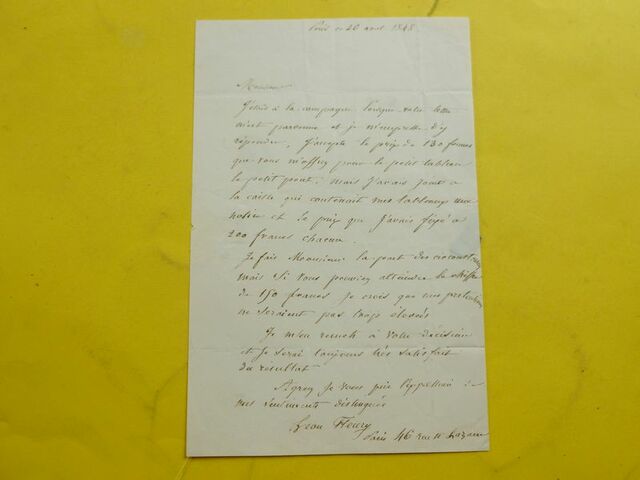 Paris ce 26 aout 1848
Monsieur
J'étais à la campagne lorsque votre lettre
m'est parvenue et je m'empresse d'y
répondre. J'accepte le prix de 130 francs
que vous m'offrez pour le petit tableau
le petit pont; mais j'avais joint à
la caisse qui contenait mes tableaux une
notice et le prix que j'avais fixé à
200 francs chacun.
Je fais Monsieur la part des circonstances
mais si vous pouviez atteindre le chiffre
de 150 francs je crois que mes prétentions
ne seraient pas trop élevées
Je m'en remets à votre décision
et je serai toujours très satisfait
du résultat
Agréez je vous prie l'expression de
mes sentiments distingués
Leon Fleury
Paris 46 rue St Lazare